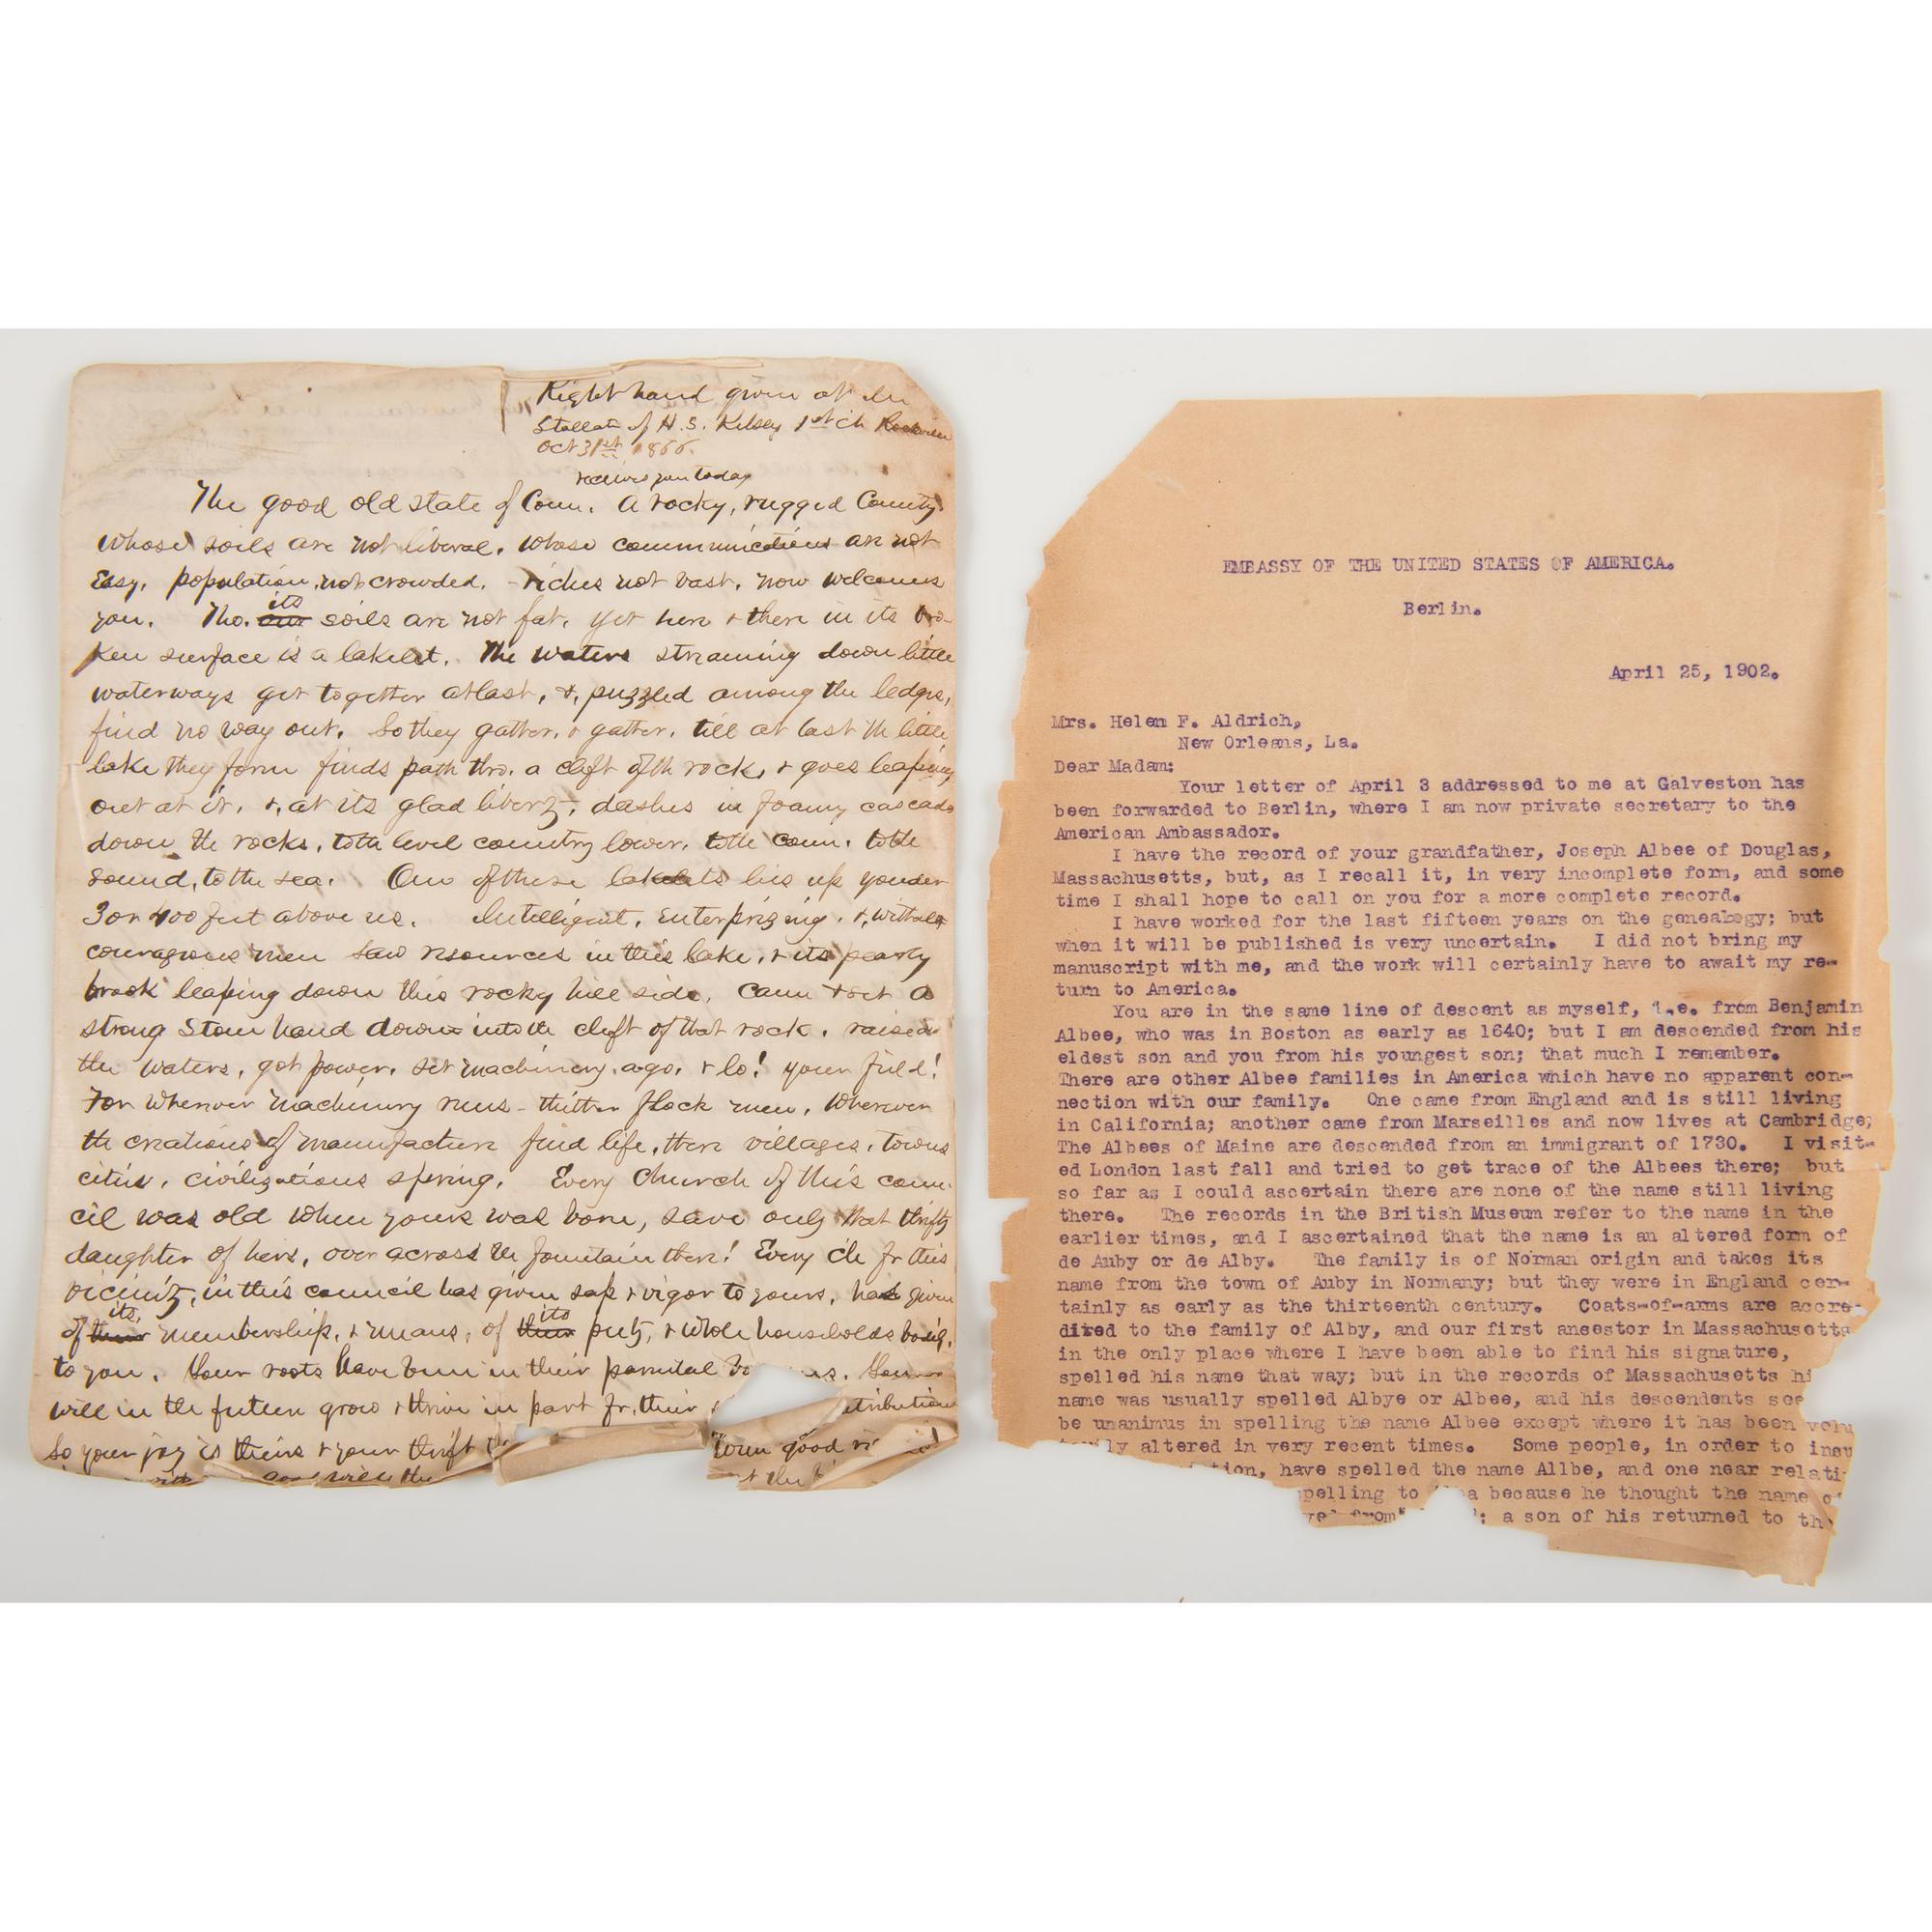 Right hand given at In
Stallatn of H. S. Kelsey 1st Ch Rockville
Oct 31st 1866.
receives you today
The good old state of Conn. A rocky, rugged County
whose soils are not liberal. whose communications are not
Easy, population not crowded, - riches not vast, now welcomes
you. Tho. its our soils are not fat, yet here + there in its bro-
ken surface is a lakelet. The waters streaming down little
waterways get together at last, +, puzzled among the ledges,
find no way out. So they gather, + gather, till at last th little
lake they form finds path thro. a cleft of th rock, + goes leaping
out at it, +, at its glad liberty, dashes in foamy cascade
down the rocks, to th level country lower, to the Conn. to the
Sound, to the sea. One of these lakelets lies up yonder
3 or 400 feet above us. Intelligent, Enterprizing, +, withal
courageous men saw resources in this lake, + its pearly
brook leaping down this rocky hill side, Came + set a
strong Stone hand down into the cleft of that rock, raised
the waters, got power, set machinery ago, + lo! your field!
For wherever machinery runs - thither flock men, Wherever
the creations of manufacture find life, there villages, towns
cities, civilizations spring. Every Church of this coun-
cil was old when yours was born, save only that thrifty
daughter of hers, over across the fountain there! Every ch fr this
vicinity, in this council has given sap + vigor to yours, has given
of its their membership, + means, of its their piety, + whole households bodily,
to you. Your roots have been in their parental
will in the future grow + thrive in part fr. their
So your joy is theirs + your thrift Your good
good will the
EMBASSY OF THE UNITED STATES OF AMERICA.
Berlin.
April 25, 1902.
Mrs. Helen F. Aldrich,
New Orleans, La.
Dear Madam:
Your letter of April 3 addressed to me at Galveston has
been forwarded to Berlin, where I am now private secretary to the
American Ambassador.
I have the record of your grandfather, Joseph Albee of Douglas,
Massachusetts, but, as I recall it, in very incomplete form, and some
time I shall hope to call on you for a more complete record.
I have worked for the last fifteen years on the genealogy; but
when it will be published is very uncertain. I did not bring my
manuscript with me, and the work will certainly have to await my re-
turn to America.
You are in the same line of descent as myself, i.e. from Benjamin
Albee, who was in Boston as early as 1640; but I am descended from his
eldest son and you from his youngest son; that much I remember.
There are other Albee families in America which have no apparent con-
nection with our family. One came from England and is still living
in California; another came from Marseilles and now lives at Cambridge;
The Albees of Maine are descended from an immigrant of 1730. I visit-
ed London last fall and tried to get trace of the Albees there; but
so far as I could ascertain there are none of the name still living
there. The records in the British Museum refer to the name in the
earlier times, and I ascertained that the name is an altered form of
de Auby or de Alby. The family is of Norman origin and takes its
name from the town of Auby in Normany; but they were in England cer-
tainly as early as the thirteenth century. Coats-of-arms are accre-
dited to the family of Alby, and our first ansestor in Massachusetts
in the only place where I have been able to find his signature,
spelled his name that way; but in the records of Massachusetts hi
name was usually spelled Albye or Albee, and his descendents see
be unanimus in spelling the name Albee except where it has been volu
ly altered in very recent times. Some people, in order to insu
tion, have spelled the name Allbe, and one near relati
pelling to because he thought the name o
from : a son of his returned to th